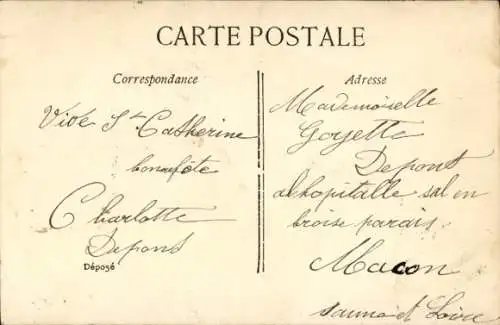 CARTE POSTALE
Correspondance
Vive Ste Catherine
bonne fête
Charlotte
Dupont
Déposé
Adresse
Mademoiselle
Depont
a lhopitalle sal en
Macon
Saune et Loire